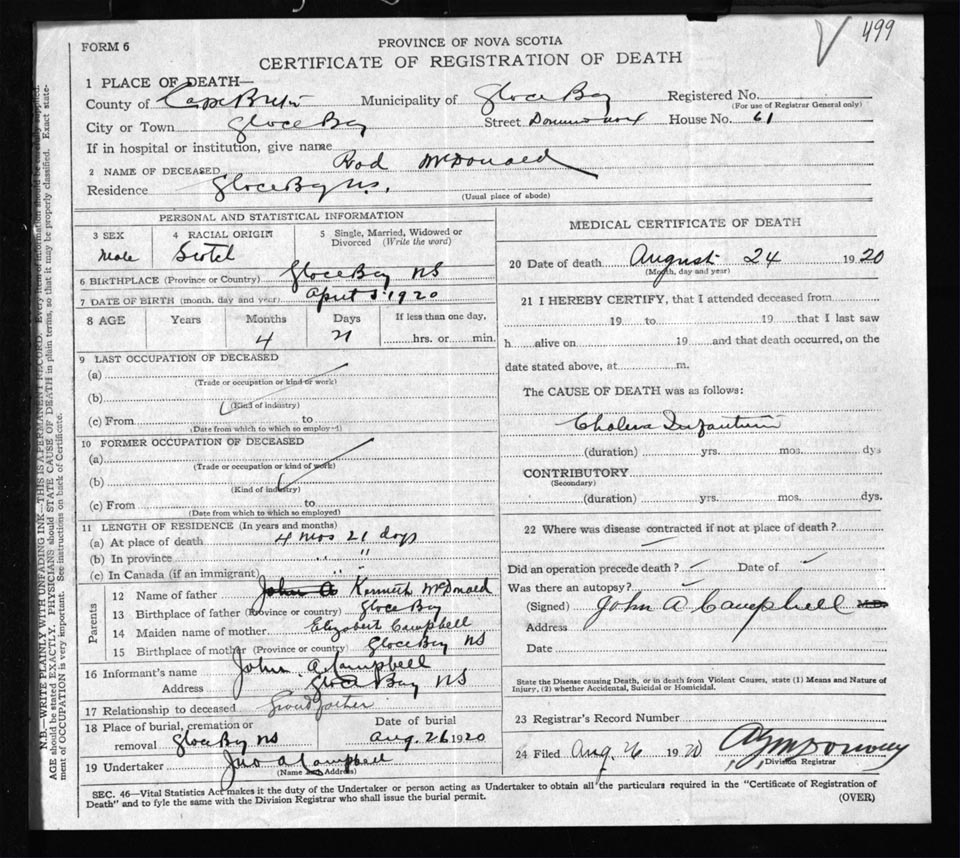 499
FORM 6
PROVINCE OF NOVA SCOTIA
CERTIFICATE OF REGISTRATION OF DEATH
1 PLACE OF DEATH—
County of Cape Breton Municipality of Glace Bay Registered No.
(For use of Registrar General only)
City or Town Glace Bay Street House No. 61
If in hospital or institution, give name
2 NAME OF DECEASED Rod McDonald
Residence Glace Bay N.S.
(Usual place of abode)
PERSONAL AND STATISTICAL INFORMATION
3 SEX 4 RACIAL ORIGIN 5 Single, Married, Widowed or
Divorced (Write the word)
Male Scotch
6 BIRTHPLACE (Province or Country) Glace Bay NS
7 DATE OF BIRTH (month, day and year) April 3 1920
8 AGE Years Months Days If less than one day,
4 21 hrs. or min.
9 LAST OCCUPATION OF DECEASED
(a)
(Trade or occupation or kind of work)
(b)
(Kind of industry)
(c) From to
(Date from which to which so employed)
10 FORMER OCCUPATION OF DECEASED
(a)
(Trade or occupation or kind of work)
(b)
(Kind of industry)
(c) From to
(Date from which to which so employed)
11 LENGTH OF RESIDENCE (In years and months)
(a) At place of death 4 mos 21 days
(b) In province " "
(c) In Canada (if an immigrant) " "
Parents
12 Name of father John A Kenneth McDonald
13 Birthplace of father (Province or country) Glace Bay
14 Maiden name of mother Elizabeth Campbell
15 Birthplace of mother (Province or country) Glace Bay NS
16 Informant's name John A Campbell
Address Glace Bay NS
17 Relationship to deceased Grand father
18 Place of burial, cremation or Date of burial
removal Glace Bay NS Aug. 26 1920
19 Undertaker Jno A Campbell
(Name and Address)
MEDICAL CERTIFICATE OF DEATH
20 Date of death August 24 1920
(Month, day and year)
21 I HEREBY CERTIFY, that I attended deceased from
19 to 19 that I last saw
h alive on 19 and that death occurred, on the
date stated above, at m.
The CAUSE OF DEATH was as follows:
Cholera Infantum
(duration) yrs. mos. dys
CONTRIBUTORY
(Secondary)
(duration) yrs. mos. dys.
22 Where was disease contracted if not at place of death?
Did an operation precede death? Date of
Was there an autopsy?
(Signed) John A Campbell M.D.
Address
Date
State the Disease causing Death, or in death from Violent Causes, state (1) Means and Nature of
Injury, (2) whether Accidental, Suicidal or Homicidal.
23 Registrar's Record Number
24 Filed Aug. 26 1920
Division Registrar
SEC. 46—Vital Statistics Act makes it the duty of the Undertaker or person acting as Undertaker to obtain all the particulars required in the "Certificate of Registration of
Death" and to fyle the same with the Division Registrar who shall issue the burial permit. (OVER)
N.B.—WRITE PLAINLY WITH UNFADING INK—THIS IS A PERMANENT RECORD. Every item of information should be carefully supplied.
AGE should be stated EXACTLY. PHYSICIANS should STATE CAUSE OF DEATH in plain terms, so that it may be properly classified. Exact state-
ment of OCCUPATION is very important. See instructions on back of Certificate.